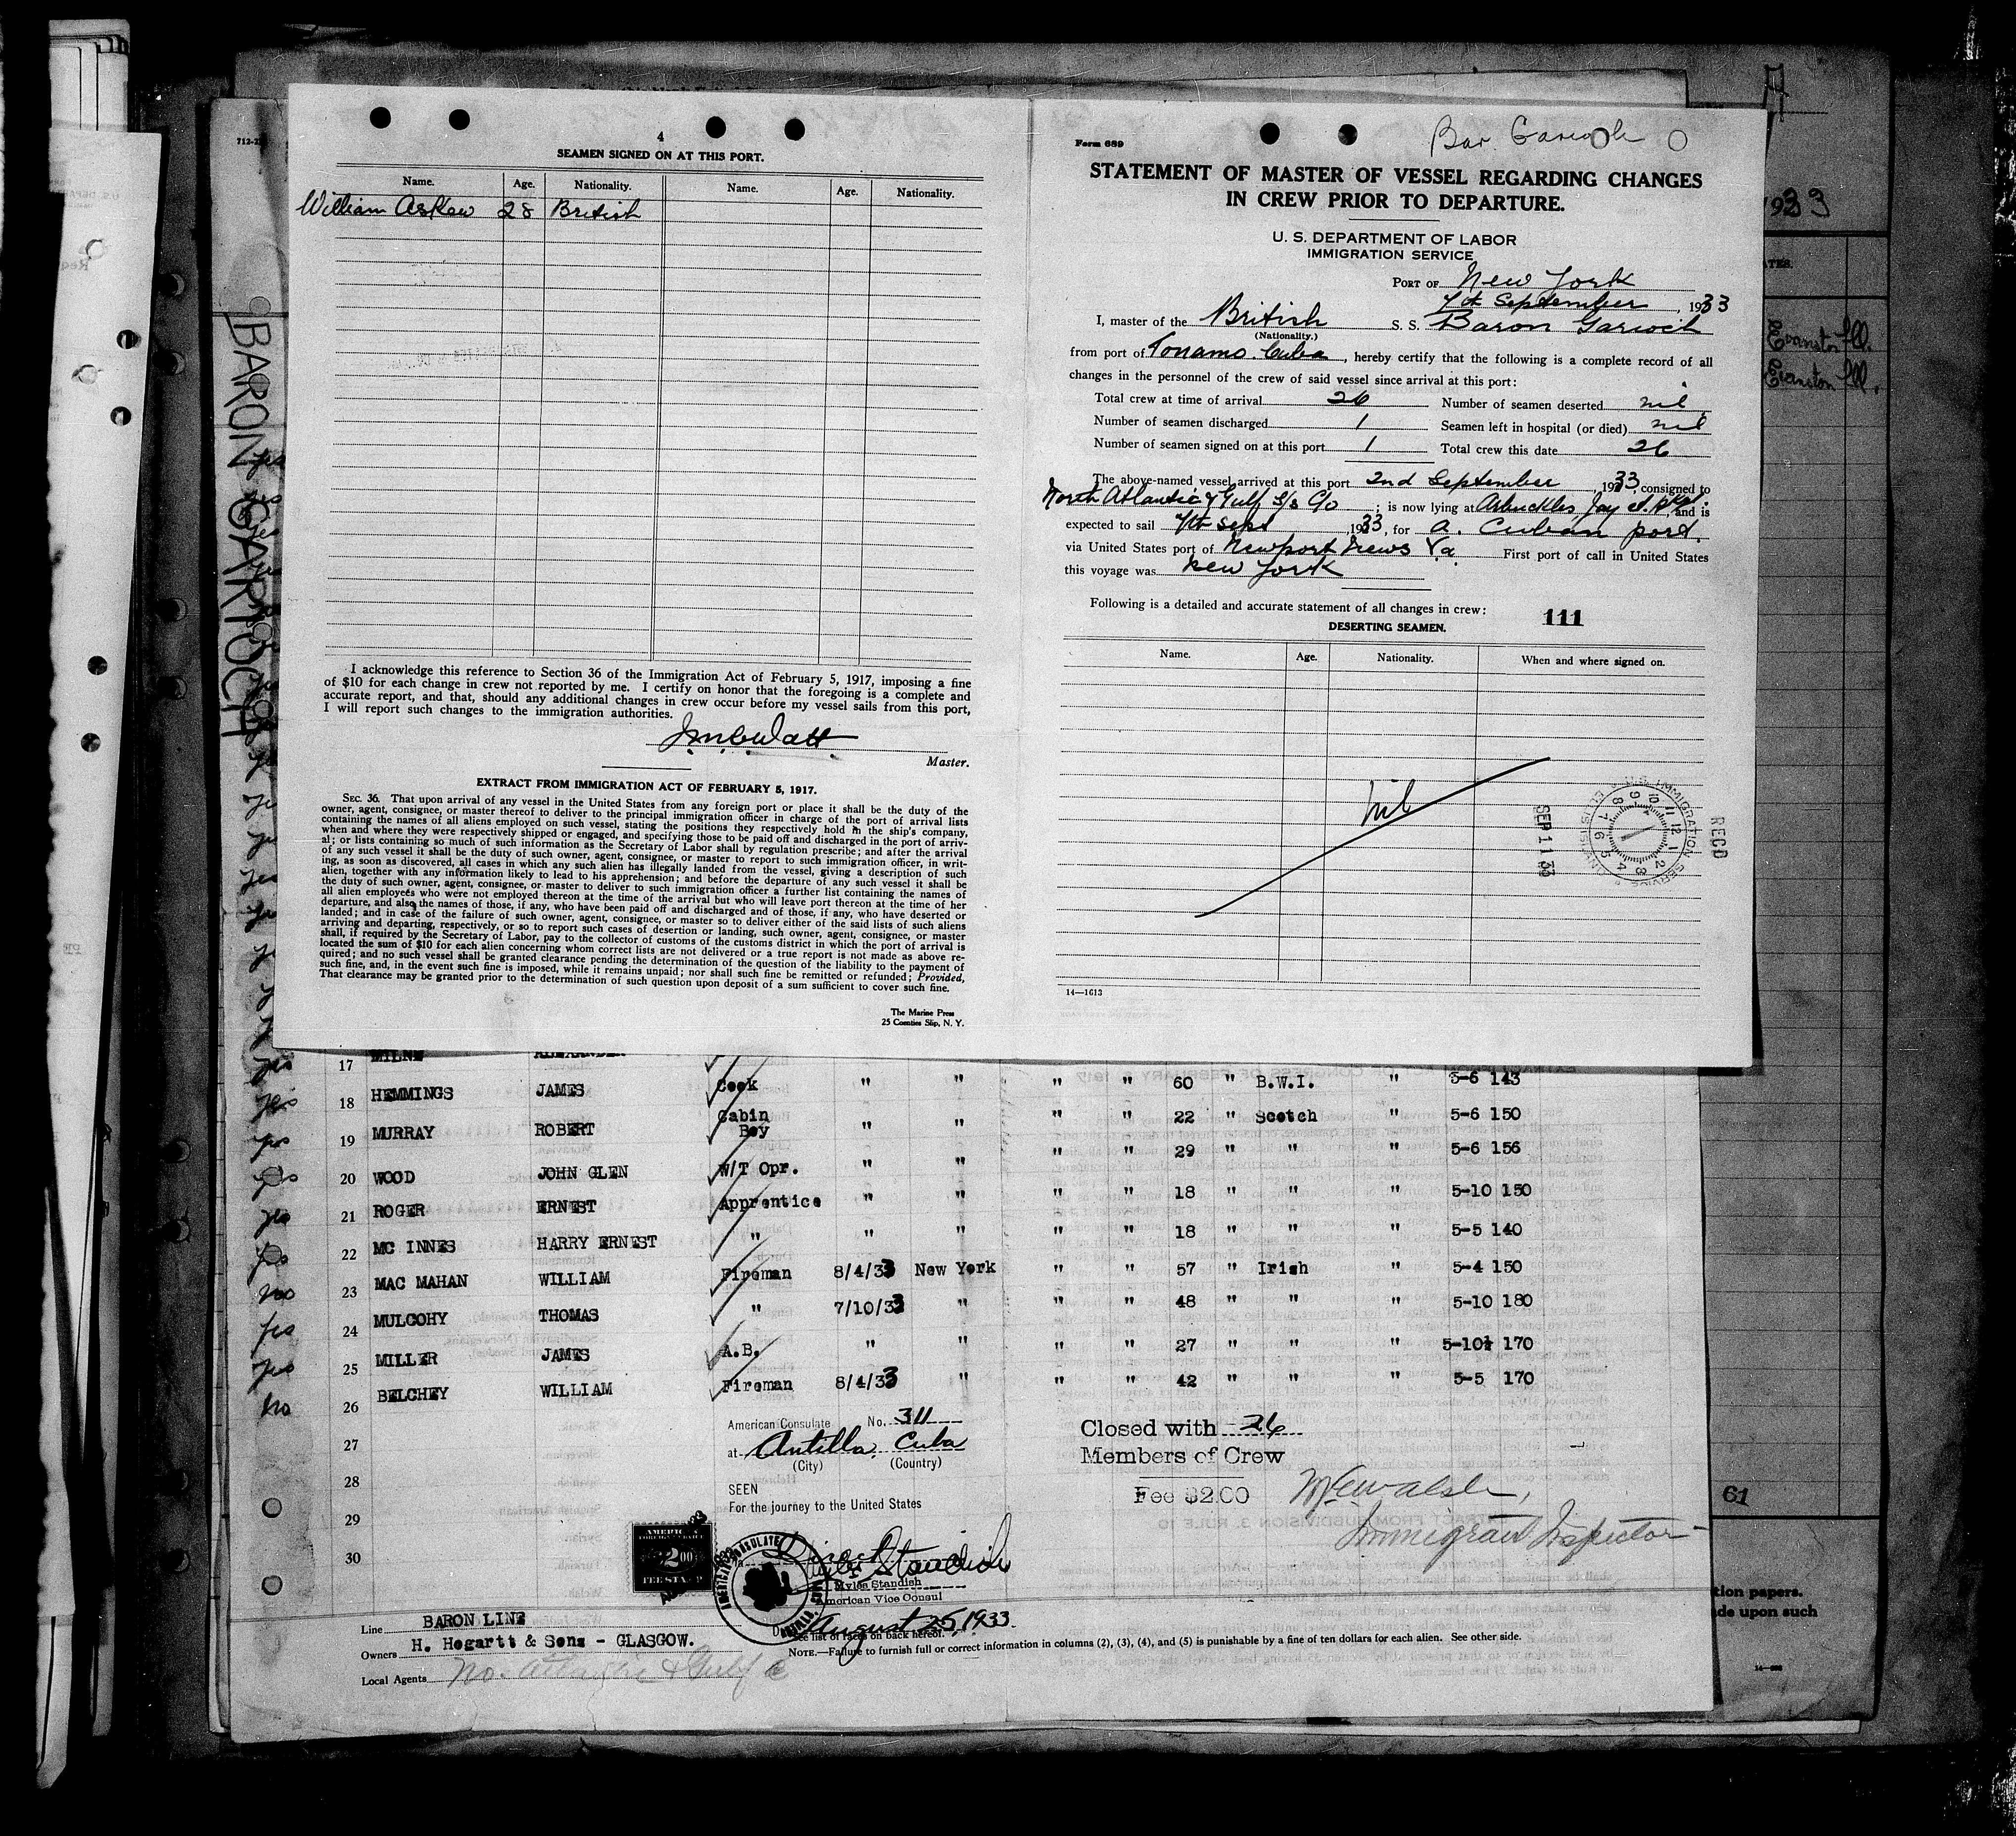 4
SEAMEN SIGNED ON AT THIS PORT.
Name. Age. Nationality. Name. Age. Nationality.
William Askew 28 British
I acknowledge this reference to Section 36 of the Immigration Act of February 5, 1917, imposing a fine
of $10 for each change in crew not reported by me. I certify on honor that the foregoing is a complete and
accurate report, and that, should any additional changes in crew occur before my vessel sails from this port,
I will report such changes to the immigration authorities.
Master.
EXTRACT FROM IMMIGRATION ACT OF FEBRUARY 5, 1917.
SEC. 36. That upon arrival of any vessel in the United States from any foreign port or place it shall be the duty of the
owner, agent, consignee, or master thereof to deliver to the principal immigration officer in charge of the port of arrival lists
containing the names of all aliens employed on such vessel, stating the positions they respectively hold in the ship's company,
when and where they were respectively shipped or engaged, and specifying those to be paid off and discharged in the port of arriv-
al; or lists containing so much of such information as the Secretary of Labor shall by regulation prescribe; and after the arrival
of any such vessel it shall be the duty of such owner, agent, consignee, or master to report to such immigration officer, in writ-
ing, as soon as discovered, all cases in which any such alien has illegally landed from the vessel, giving a description of such
alien, together with any information likely to lead to his apprehension; and before the departure of any such vessel it shall be
the duty of such owner, agent, consignee, or master to deliver to such immigration officer a further list containing the names of
all alien employees who were not employed thereon at the time of the arrival but who will leave port thereon at the time of her
departure, and also the names of those, if any, who have been paid off and discharged and of those, if any, who have deserted or
landed; and in case of the failure of such owner, agent, consignee, or master so to deliver either of the said lists of such aliens
arriving and departing, respectively, or so to report such cases of desertion or landing, such owner, agent, consignee, or master
shall, if required by the Secretary of Labor, pay to the collector of customs of the customs district in which the port of arrival is
located the sum of $10 for each alien concerning whom correct lists are not delivered or a true report is not made as above re-
quired; and no such vessel shall be granted clearance pending the determination of the question of the liability to the payment of
such fine, and, in the event such fine is imposed, while it remains unpaid; nor shall such fine be remitted or refunded; Provided,
That clearance may be granted prior to the determination of such question upon deposit of a sum sufficient to cover such fine.
The Marine Press
25 Coenties Slip, N. Y.
Form 689
STATEMENT OF MASTER OF VESSEL REGARDING CHANGES
IN CREW PRIOR TO DEPARTURE.
U. S. DEPARTMENT OF LABOR
IMMIGRATION SERVICE
PORT OF New York
7th September, 1933
I, master of the British S. S. Baron Garioch
(Nationality.)
from port of Tanamo. Cuba, hereby certify that the following is a complete record of all
changes in the personnel of the crew of said vessel since arrival at this port:
Total crew at time of arrival 26 Number of seamen deserted nil
Number of seamen discharged 1 Seamen left in hospital (or died) nil
Number of seamen signed on at this port 1 Total crew this date 26
The above-named vessel arrived at this port 2nd September, 1933, consigned to
North Atlantic & Gulf S/s C/o; is now lying at Arbuckles, and is
expected to sail 7th Sept 1933, for a. Cuban port.
via United States port of Newport News Va. First port of call in United States
this voyage was New York
Following is a detailed and accurate statement of all changes in crew: 111
DESERTING SEAMEN.
Name. Age. Nationality. When and where signed on.
nil
U.S. IMMIGRATION SERVICE ELLIS ISLAND
SEP 11 33
RECD
14—1613
BARON GARIOCH
1933
ATES.
Evanston Ill.
Evanston Ill.
17 MILNE ALEXANDER
yes 18 HEMMINGS JAMES Cook " " " " 60 " B.W.I. " 5-6 143
yes 19 MURRAY ROBERT Cabin Boy " " " " 22 " Scotch " 5-6 150
yes 20 WOOD JOHN GLEN W/T Opr. " " " " 29 " " " 5-6 156
yes 21 ROGER ERNEST Apprentice " " " " 18 " " " 5-10 150
yes 22 MC INNES HARRY ERNEST " " " " 18 " " " 5-5 140
no 23 MAC MAHAN WILLIAM Fireman 8/4/33 New York " " 57 " Irish " 5-4 150
yes 24 MULCOHY THOMAS " 7/10/33 " " " 48 " " " 5-10 180
yes 25 MILLER JAMES A.B. " " " " 27 " " " 5-10½ 170
no 26 BELCHEY WILLIAM Fireman 8/4/33 " " " 42 " " " 5-5 170
27
28
29
30
American Consulate No. 311
at Antilla, Cuba
(City) (Country)
SEEN
For the journey to the United States
Myles Standish
Myles Standish
American Vice Consul
August 25, 1933.
Closed with 26
Members of Crew
Fee $2.00
Immigrant Inspector
61
Line BARON LINE
Owners H. Hogartt & Sons - GLASGOW.
Local Agents No. Atlantic & Gulf
See list of races on back hereof.
NOTE.—Failure to furnish full or correct information in columns (2), (3), (4), and (5) is punishable by a fine of ten dollars for each alien. See other side.
tion papers.
de upon such